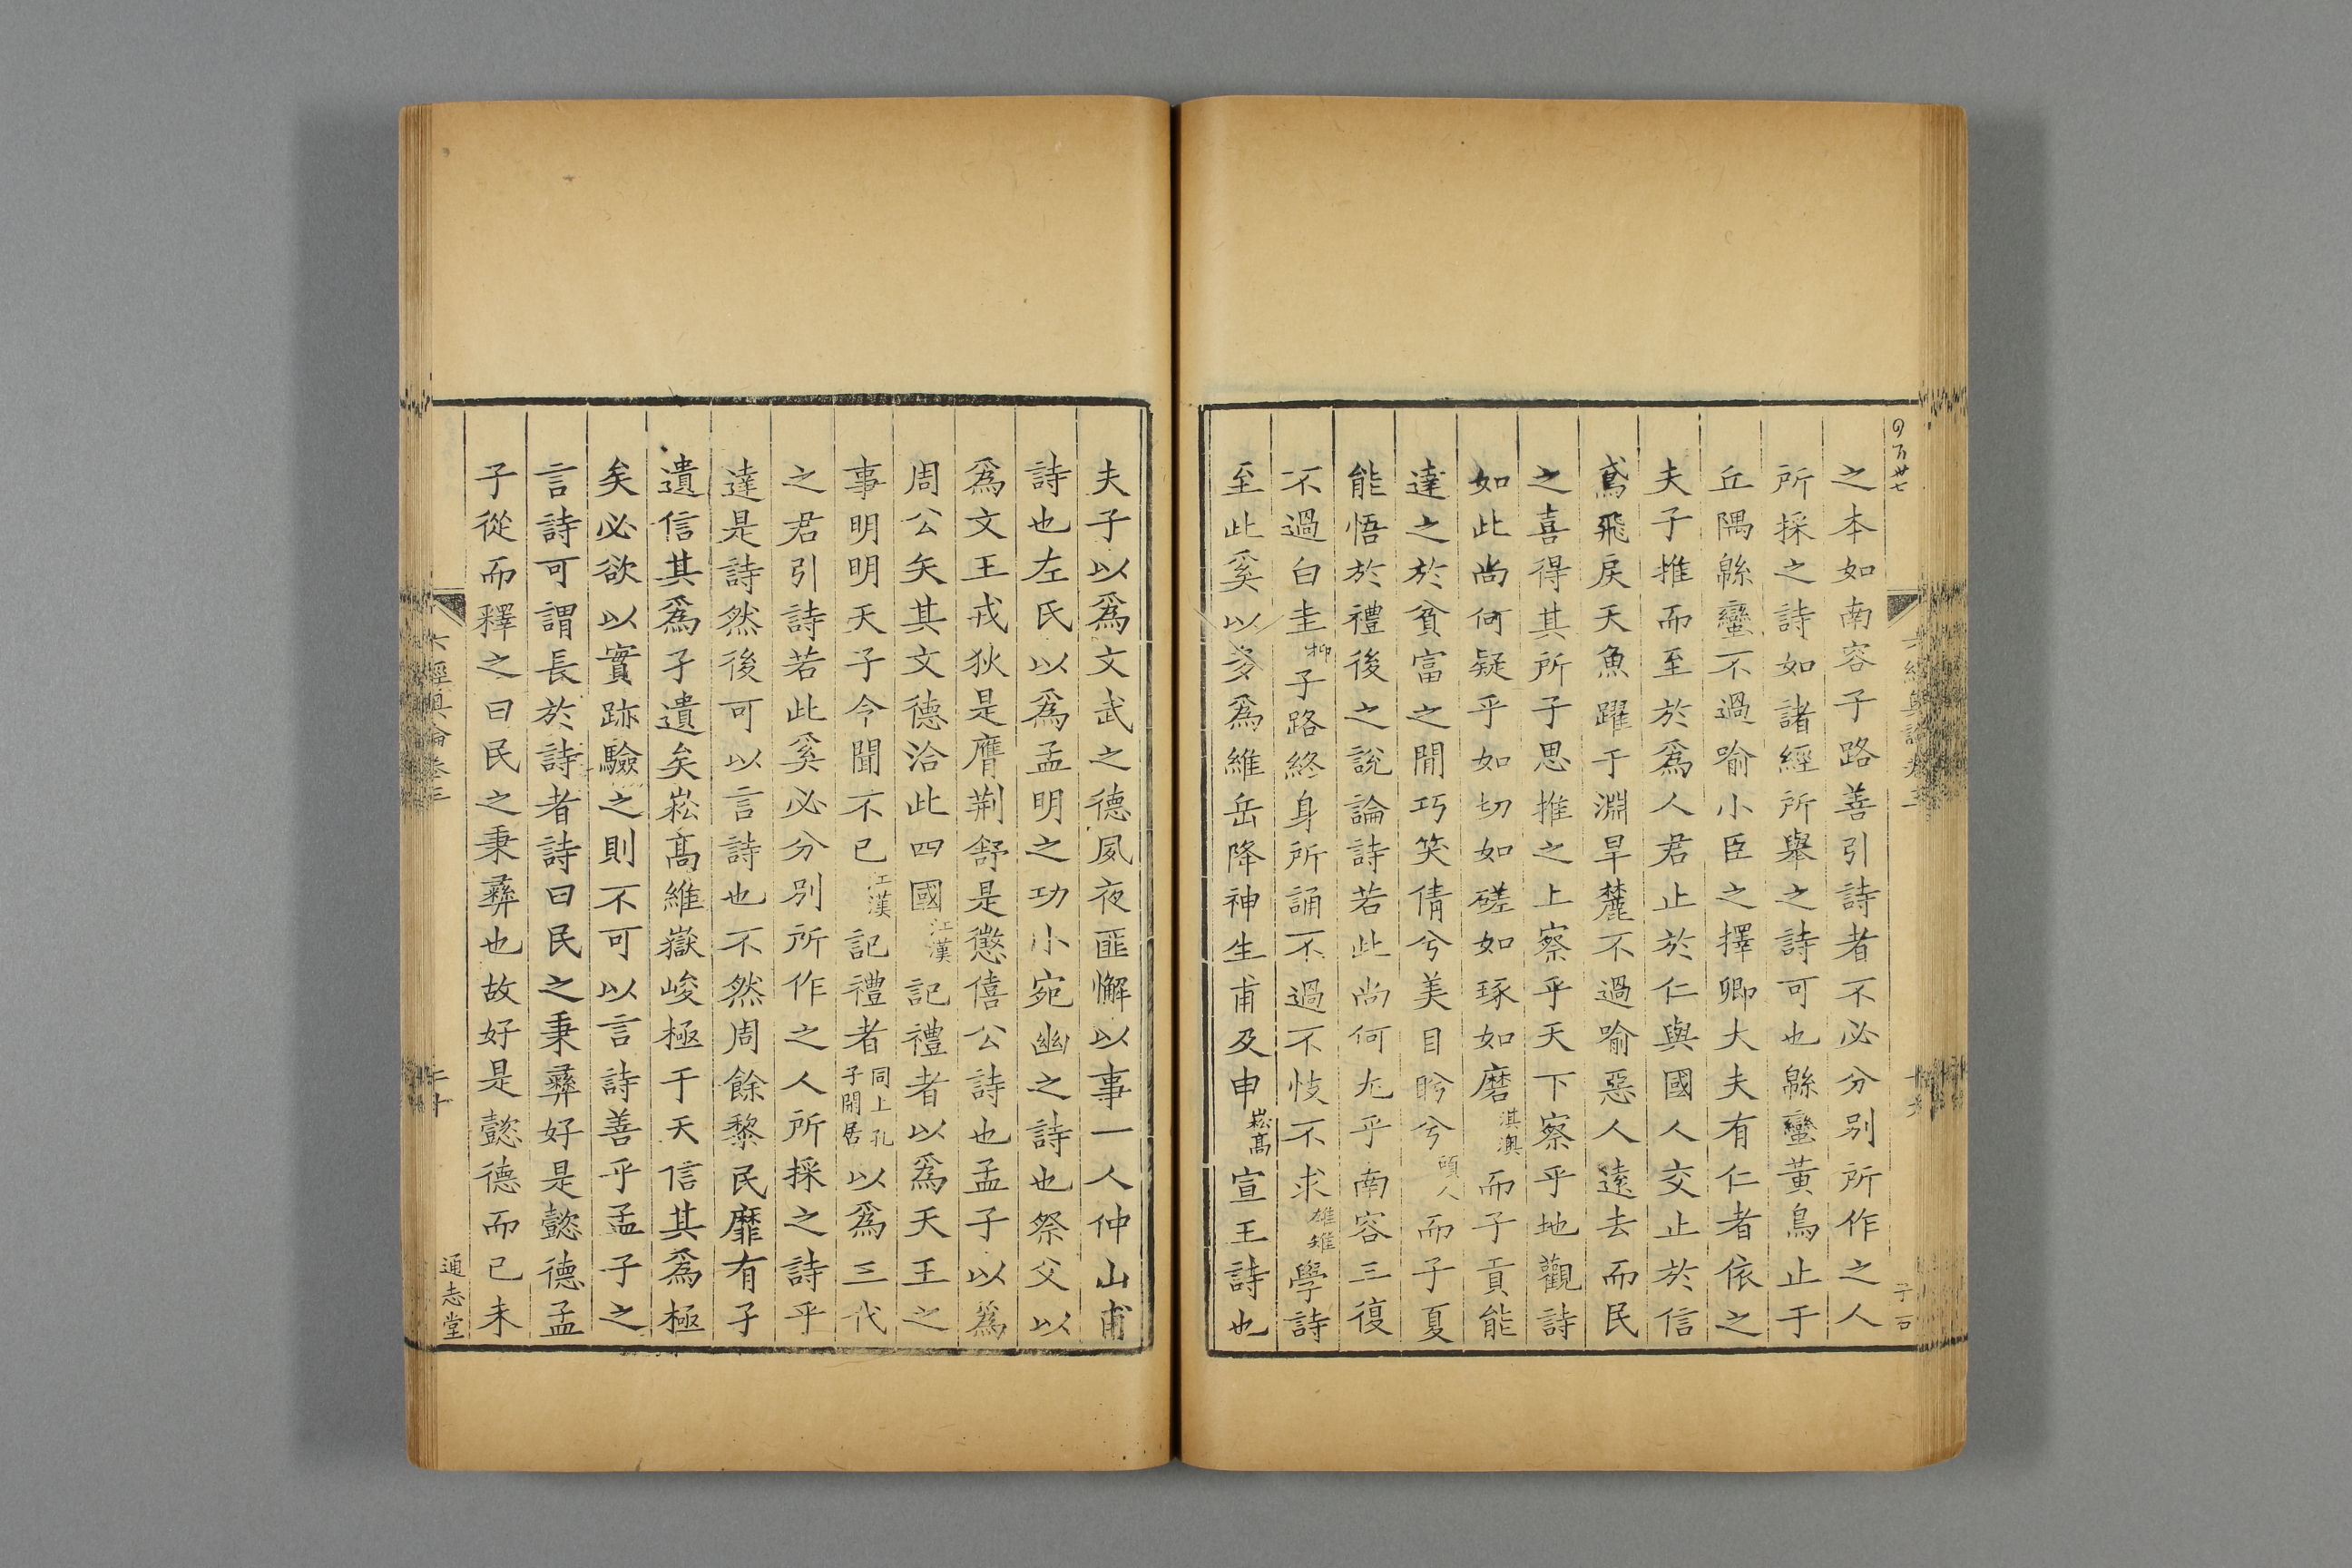 之本如南容子路善引詩者不必分別所作之人
所採之詩如諸經所舉之詩可也緜蠻黃鳥止于
丘隅緜蠻不過喻小臣之擇卿大夫有仁者依之
夫子推而至於爲人君止於仁與國人交止於信
鳶飛戾天魚躍于淵旱麓不過喻惡人遠去而民
之喜得其所子思推之上察乎天下察乎地觀詩
如此尚何疑乎如切如磋如琢如磨淇澳而子貢能
達之於貧富之間巧笑倩兮美目盻兮碩人而子夏
能悟於禮後之說論詩若此尚何尤乎南容三復
不過白圭抑子路終身所誦不過不忮不求雄雉學詩
至此奚以多爲維岳降神生甫及申崧高宣王詩也
夫子以爲文武之德夙夜匪懈以事一人仲山甫
詩也左氏以爲孟明之功小宛幽之詩也祭父以
爲文王戎狄是膺荆舒是懲僖公詩也孟子以爲
周公矣其文德洽此四國江漢記禮者以爲天王之
事明明天子令聞不已江漢記禮者同上孔子閒居以爲三代
之君引詩若此奚必分別所作之人所採之詩乎
達是詩然後可以言詩也不然周餘黎民靡有孑
遺信其爲孑遺矣崧高維嶽峻極于天信其爲極
矣必欲以實跡驗之則不可以言詩善乎孟子之
言詩可謂長於詩者詩曰民之秉彞好是懿德孟
子從而釋之曰民之秉彞也故好是懿德而已未
六經奧論卷三
通志堂